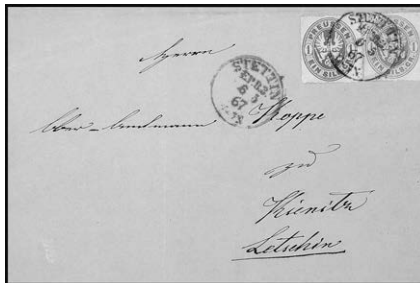 PREUSSEN
EIN SILBERGR.
1
STETTIN
Herrn
STETTIN
EPR.2
6 3
67
Ober-Amtmann Koppe
zu
Kienitz
Letschin